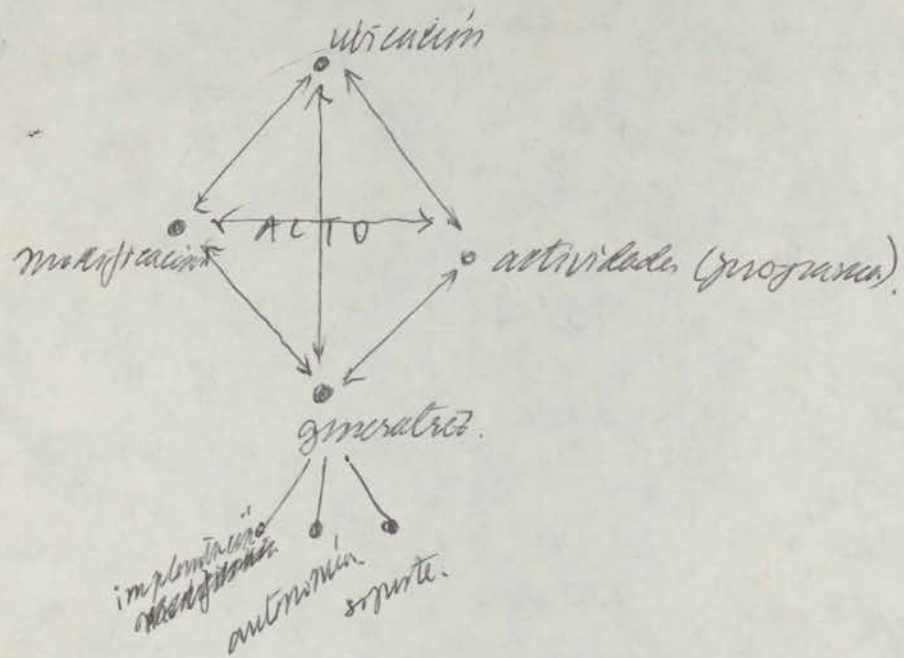 ubicación
ACTO
modificación
actividades (programa).
generatriz.
implantación
autonomía.
soporte.